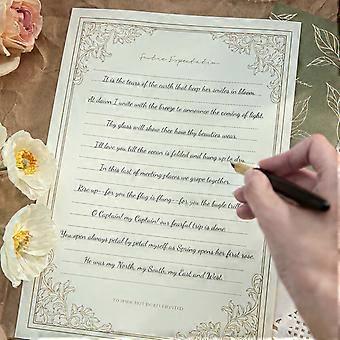 Future Expectation
It is the tears of the earth that keep her smiles in bloom.
At dawn I unite with the breeze to announce the coming of light.
Thy glass will show thee how thy beauties wear.
I'll love you till the ocean is folded and hung up to dry
In this last of meeting places we grope together.
Rise up--for you the flag is flung--for you the bugle trills
O Captain! my Captain! our fearful trip is done.
You open always petal by petal myself as Spring opens her first rose.
He was my North, my South, my East and West.